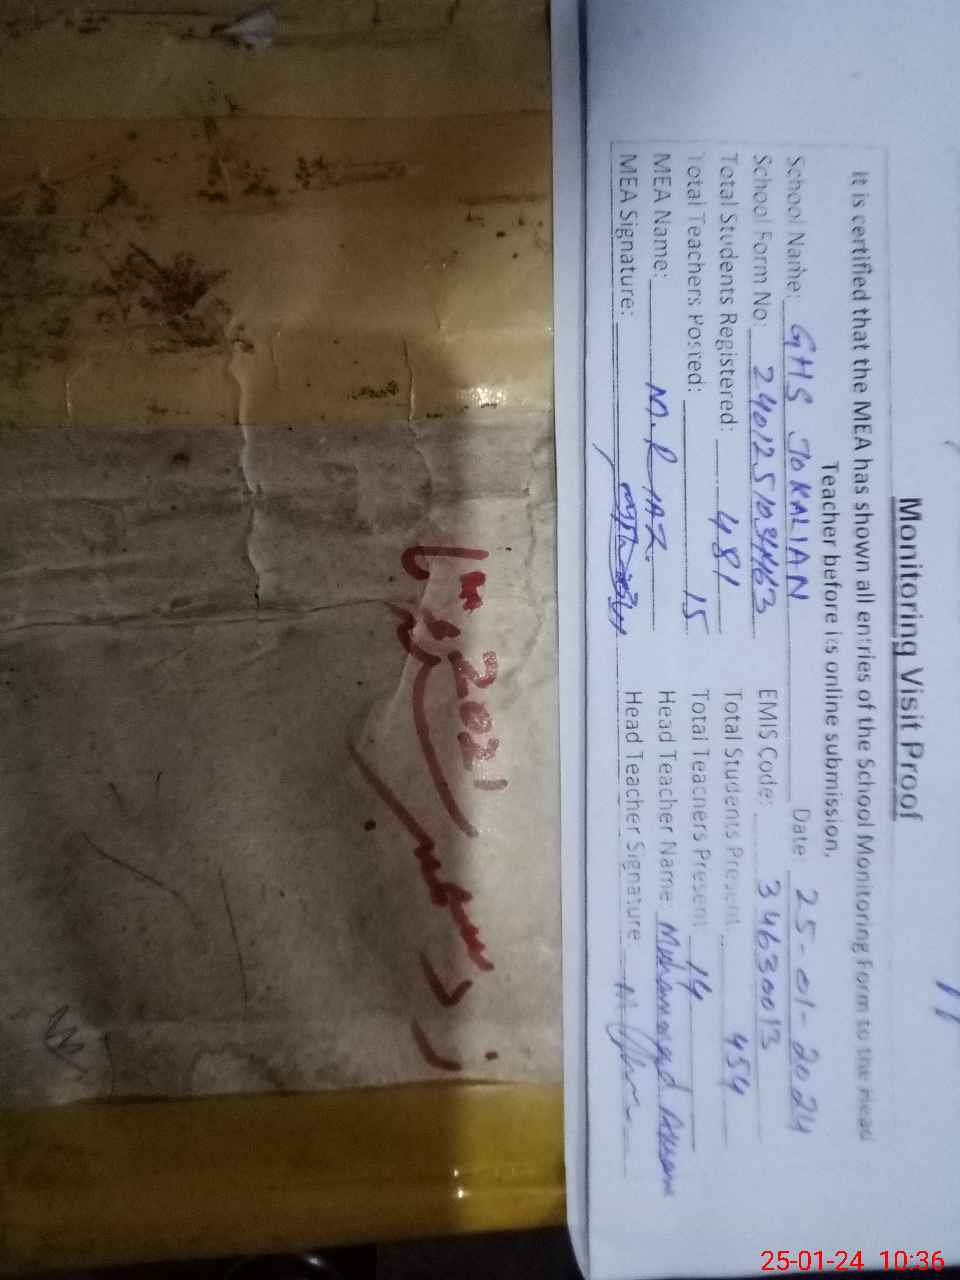 Monitoring Visit Proof
It is certified that the MEA has shown all entries of the School Monitoring Form to the Head
Teacher before its online submission.
School Name: GHS JOKALIAN Date 25-01-2024
School Form No: 240125103463 EMIS Code: 34630013
Total Students Registered: 481 Total Students Present 454
Total Teachers Posted: 15 Total Teachers Present 14
MEA Name: M. RIAZ Head Teacher Name Muhammad
MEA Signature: Head Teacher Signature
2021
25-01-24 10:36